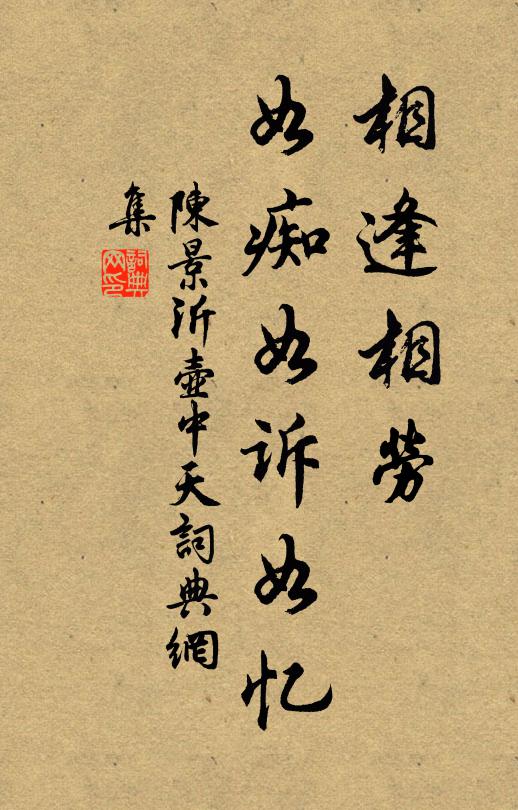 相逢相勞
如痴如訴如忆
陳景沂壺中天詞典網
集
詞典網印